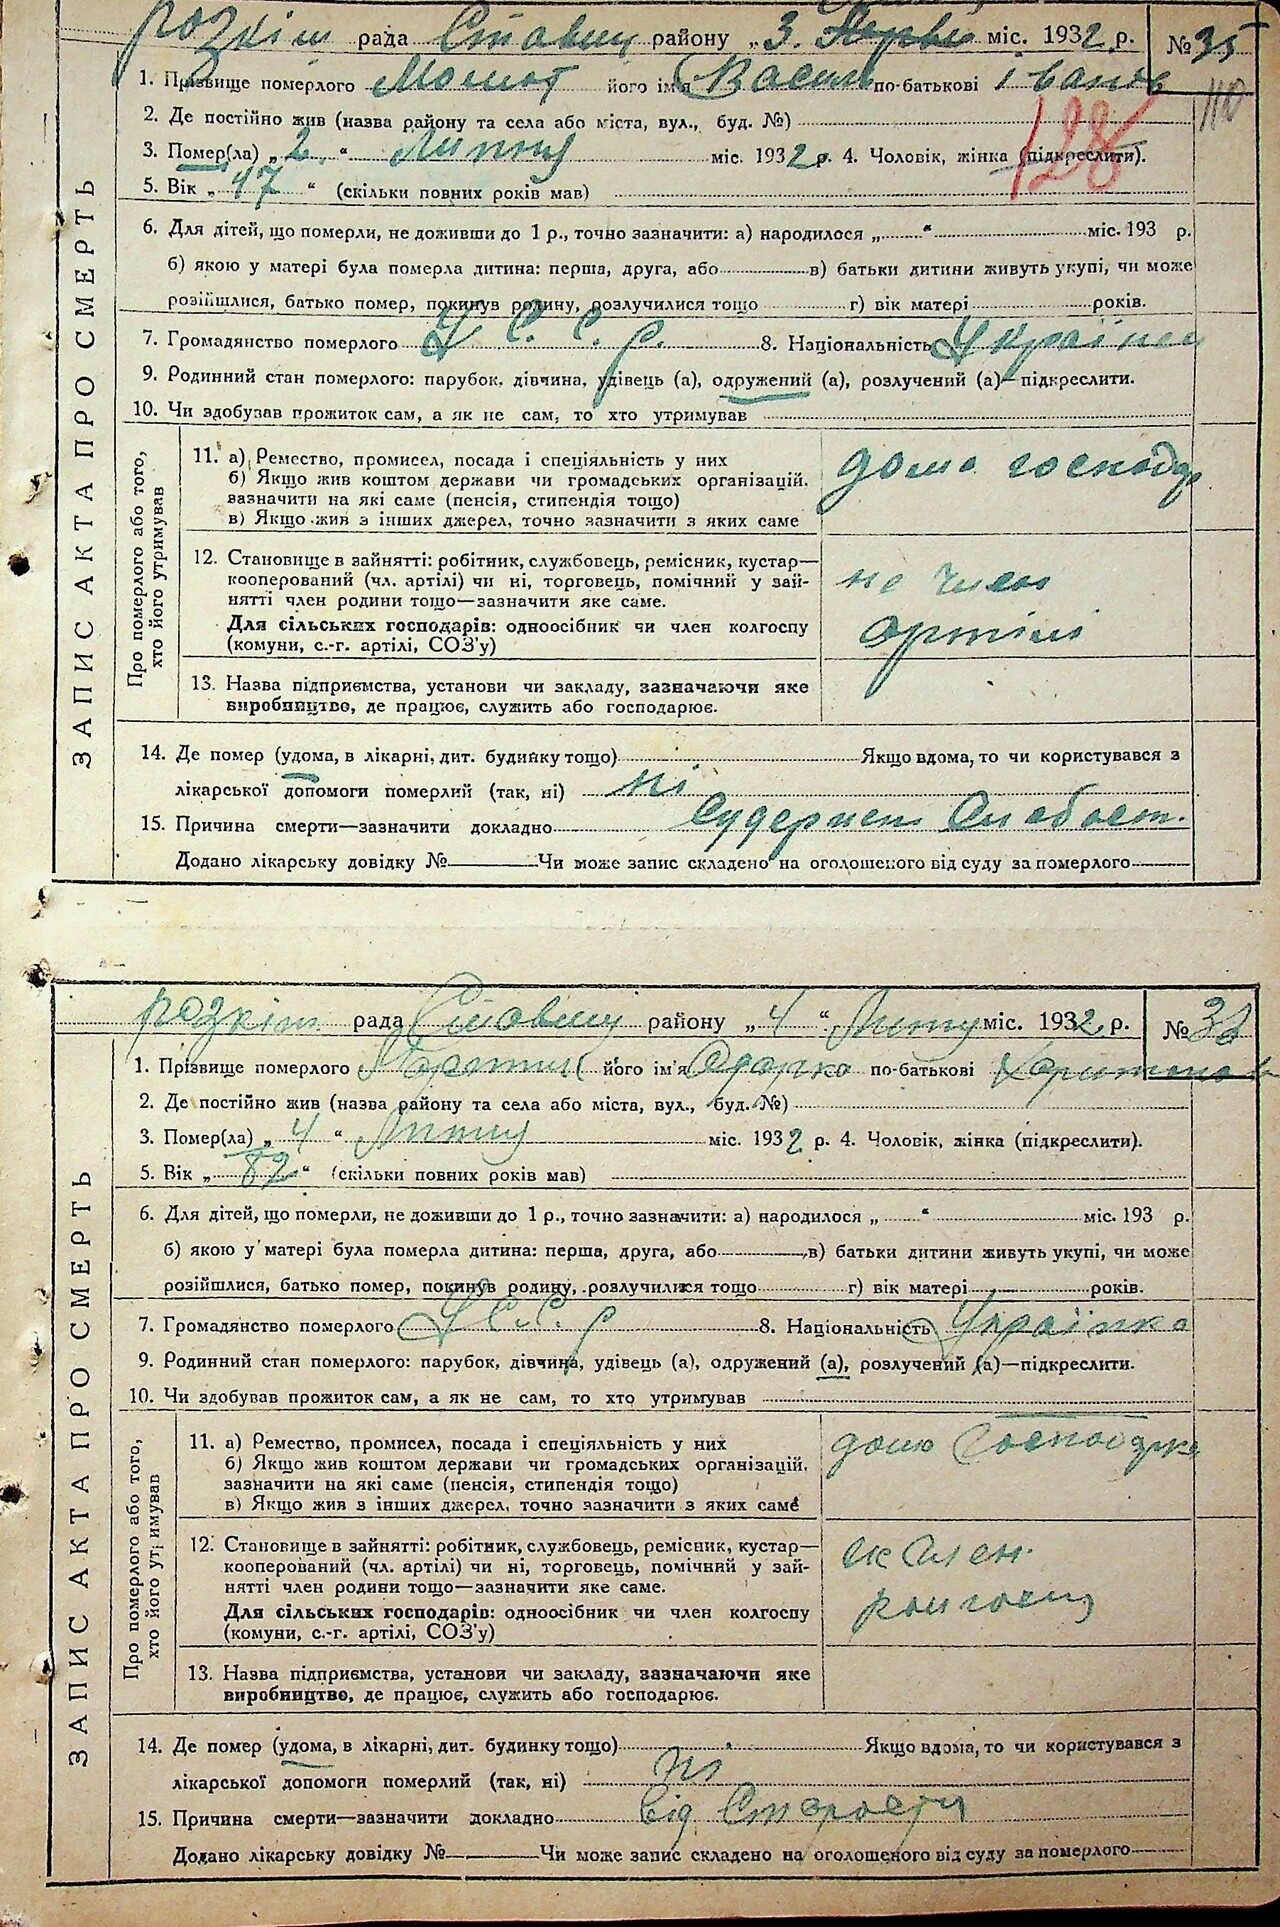 розкіш рада Ставищ району „ 3. міс. 1932 р. № 35
110
1. Прізвище померлого його ім'я Василь по-батькові Іванов
2. Де постійно жив (назва району та села або міста, вул., буд. №)
128
3. Помер(ла) „ 2 “ Липня міс. 1932 р. 4. Чоловік, жінка (підкреслити).
5. Вік „ 47 “ (скільки повних років мав)
6. Для дітей, що померли, не доживши до 1 р., точно зазначити: а) народилося „ “ міс. 193 р.
б) якою у матері була померла дитина: перша, друга, або в) батьки дитини живуть укупі, чи може
розійшлися, батько помер, покинув родину, розлучилися тощо г) вік матері років.
7. Громадянство померлого У. С. С. р. 8. Національність
9. Родинний стан померлого: парубок, дівчина, удівець (а), одружений (а), розлучений (а)—підкреслити.
10. Чи здобував прожиток сам, а як не сам, то хто утримував
ЗАПИС АКТА ПРО СМЕРТЬ
Про померлого або того, хто його утримував
11. а) Ремество, промисел, посада і спеціяльність у них
б) Якщо жив коштом держави чи громадських організацій, зазначити на які саме (пенсія, стипендія тощо)
в) Якщо жив з інших джерел, точно зазначити з яких саме
домо господар
12. Становище в зайнятті: робітник, службовець, ремісник, кустар—
кооперований (чл. артілі) чи ні, торговець, помічний у зай-
нятті член родини тощо—зазначити яке саме.
Для сільських господарів: одноосібник чи член колгоспу
(комуни, с.-г. артілі, СОЗ'у)
не член
артілі
13. Назва підприємства, установи чи закладу, зазначаючи яке
виробництво, де працює, служить або господарює.
14. Де помер (удома, в лікарні, дит. будинку тощо) Якщо вдома, то чи користувався з
лікарської допомоги померлий (так, ні) ні
15. Причина смерти—зазначити докладно
Додано лікарську довідку № Чи може запис складено на оголошеного від суду за померлого
розкіш рада Ставищ району „ 4 “ міс. 1932 р. №
1. Прізвище померлого його ім'я Одарка по-батькові
2. Де постійно жив (назва району та села або міста, вул., буд. №)
3. Помер(ла) „ 4 “ міс. 1932 р. 4. Чоловік, жінка (підкреслити).
5. Вік „ 82 “ (скільки повних років мав)
6. Для дітей, що померли, не доживши до 1 р., точно зазначити: а) народилося „ “ міс. 193 р.
б) якою у матері була померла дитина: перша, друга, або в) батьки дитини живуть укупі, чи може
розійшлися, батько помер, покинув родину, розлучилися тощо г) вік матері років.
7. Громадянство померлого У С. С. р 8. Національність Українка
9. Родинний стан померлого: парубок, дівчина, удівець (а), одружений (а), розлучений (а)—підкреслити.
10. Чи здобував прожиток сам, а як не сам, то хто утримував
ЗАПИС АКТА ПРО СМЕРТЬ
Про померлого або того, хто його утримував
11. а) Ремество, промисел, посада і спеціяльність у них
б) Якщо жив коштом держави чи громадських організацій, зазначити на які саме (пенсія, стипендія тощо)
в) Якщо жив з інших джерел, точно зазначити з яких саме
домо господарка
12. Становище в зайнятті: робітник, службовець, ремісник, кустар—
кооперований (чл. артілі) чи ні, торговець, помічний у зай-
нятті член родини тощо—зазначити яке саме.
Для сільських господарів: одноосібник чи член колгоспу
(комуни, с.-г. артілі, СОЗ'у)
член
13. Назва підприємства, установи чи закладу, зазначаючи яке
виробництво, де працює, служить або господарює.
14. Де помер (удома, в лікарні, дит. будинку тощо) Якщо вдома, то чи користувався з
лікарської допомоги померлий (так, ні) ні
15. Причина смерти—зазначити докладно від Старости
Додано лікарську довідку № Чи може запис складено на оголошеного від суду за померлого